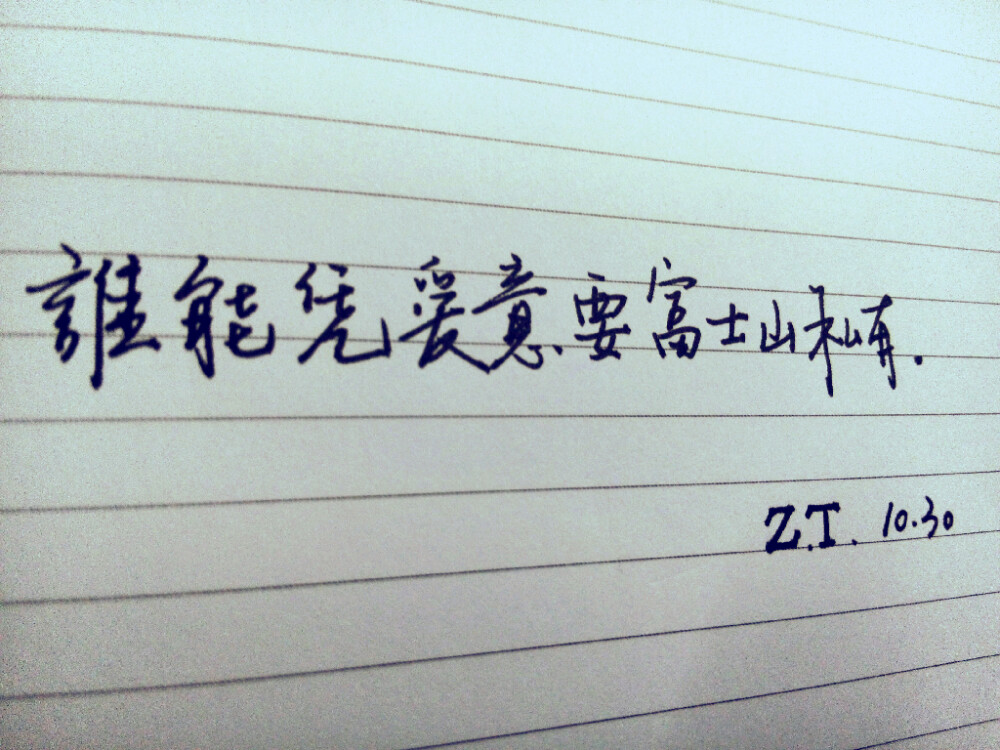 誰能凭爱意要富士山私有.
Z.T. 10.30